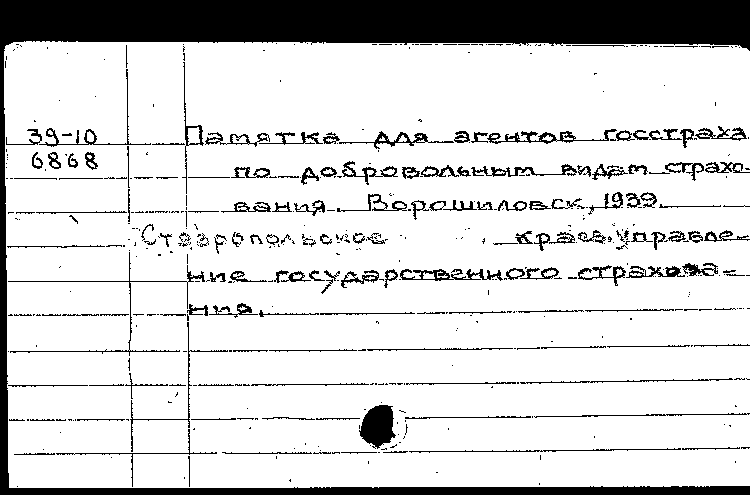 39-10
6868
Памятка для агентов госстраха
по добровольным видам страхо-
вания. Ворошиловск, 1939.
Ставропольское краев. управле-
ние государственного страхова-
ния.